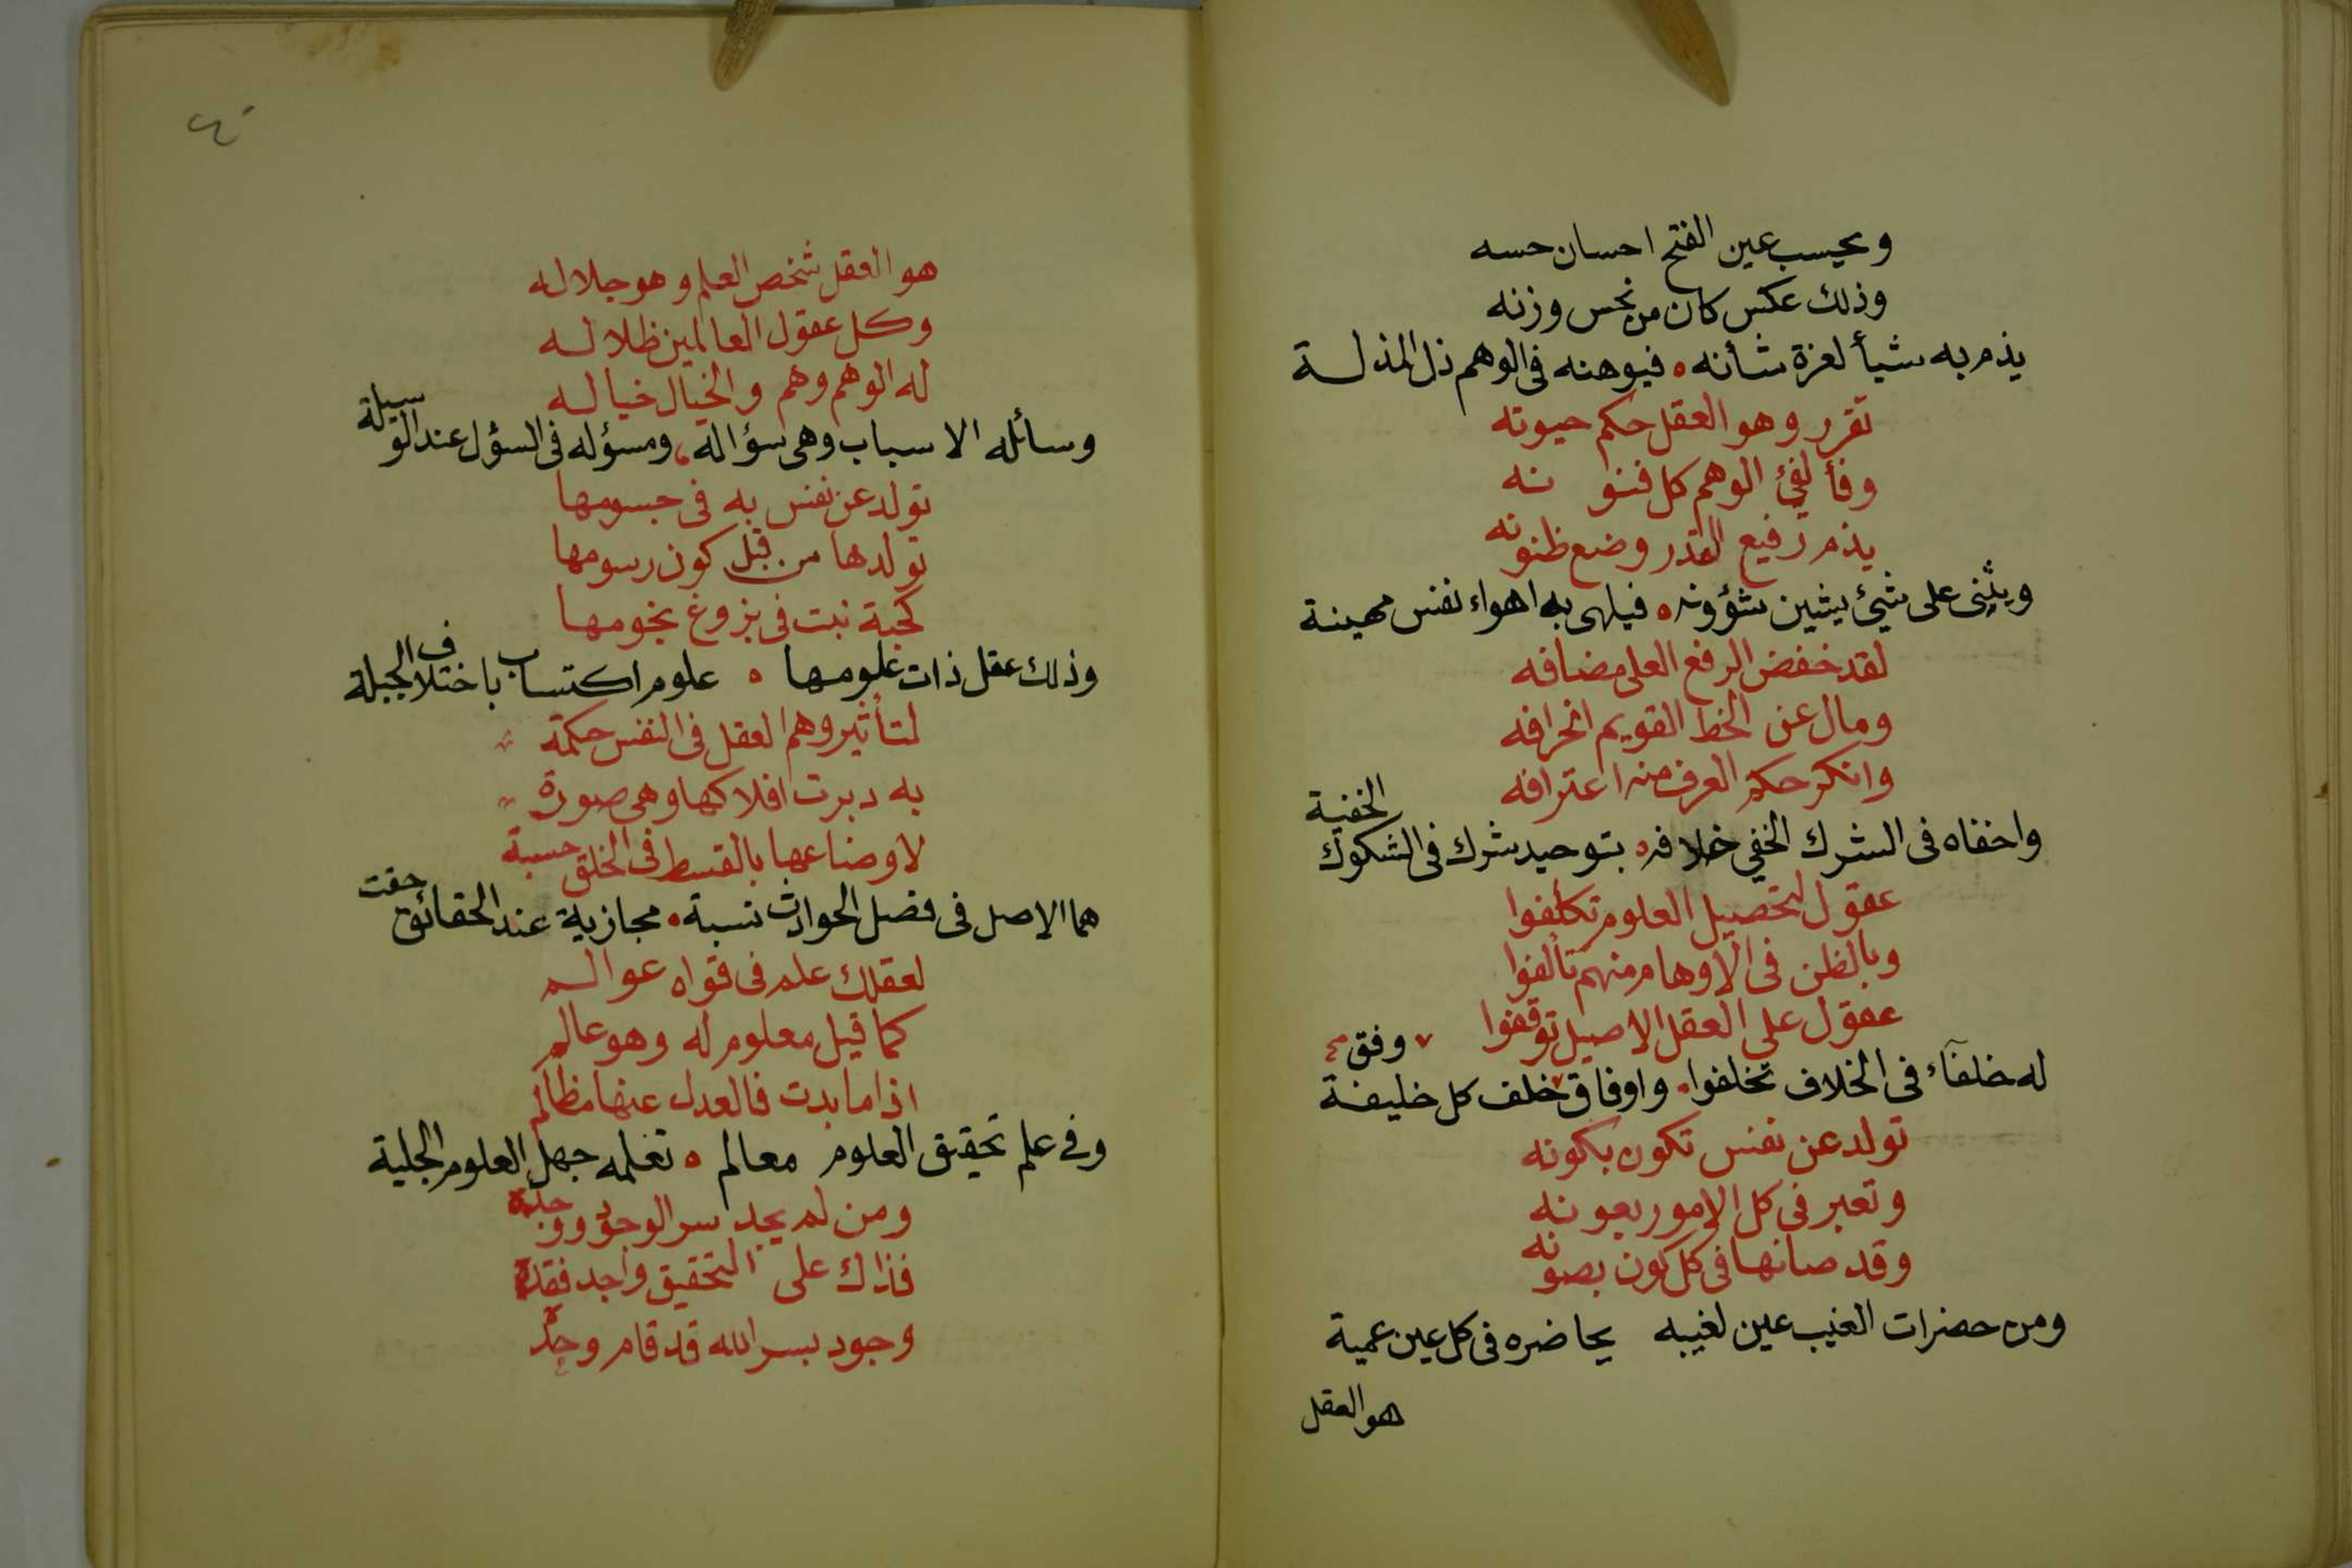 ويحسب عين الفتح احسان حسه
وذلك عكس كان من نحس وزنه
يذم به شيأ لعزة شأنه ۰ فيوهنه فى الوهم ذل المذلة
تقرر وهو العقل حكم حيوته
الوهم كل فنونه
يذم رفيع القدر وضع ظنونه
ويثنى على شيئ يشين شؤونه ۰ فيلهى به اهواء نفس مهينة
لقد خفض الرفع العلى مضافه
ومال عن الخط القويم انحرافه
وانكر حكم العرف منه اعترافه
واخفاه فى الشرك الخفي خلافه ۰ بتوحيد شرك فى الشكوك الخفية
عقول لتحصيل العلوم تكلفوا
وبالظن فى الاوهام منهم تألفوا
عقول على العقل الاصيل توقفوا
وفق
له خلفاء فى الخلاف تخلفوا ۰ واوفاق خلف كل خليفة
تولد عن نفس تكون بكونه
وتعبر فى كل الامور بعونه
وقد صانها فى كل كون بصونه
ومن حضرات الغيب عين لغيبه يحاضره فى كل عين عمية
هو العقل
هو العقل شخص العلم وهو جلاله
وكل عقول العالمين ظلاله
له الوهم وهم والخيال خياله
وسائله الاسباب وهى سؤاله ۰ ومسؤله فى السؤل عند الوسيلة
تولد عن نفس به فى جسومها
تولدها من قبل كون رسومها
كحبة نبت فى بزوغ نجومها
وذلك عقل ذات علومها ۰ علوم اكتساب باختلاف الجبلة
لتأثير وهم العقل فى النفس حكمة
به دبرت افلاكها وهى صورة
لاوضاعها بالقسط فى الخلق حسبة
هما الاصل فى فضل الحوادث نسبة ۰ مجازية عند الحقائق حقت
لعقلك علم فى قواه عوالم
كما قيل معلوم له وهو عالم
اذا ما بدت فالعدل عنها مظالم
وفي علم تحقيق العلوم معالم ۰ تعلمه جهل العلوم الجلية
ومن لم يجد سر الوجود ووجده
فذاك على التحقيق واجد فقده
وجود بسر الله قد قام وحده